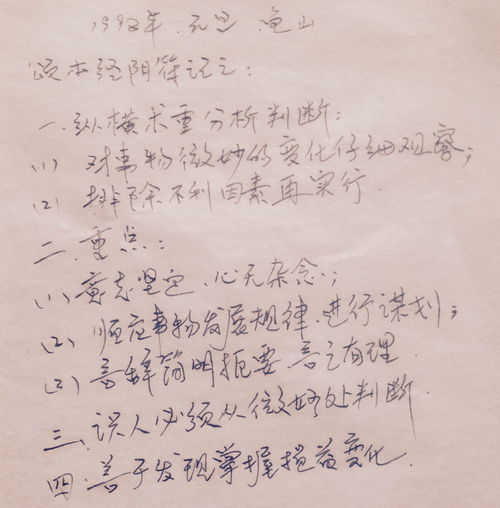 1992年.元旦.龟山
读本经阴符记之:
一.纵横术重分析判断:
(1) 对事物微妙的变化仔细观察;
(2) 排除不利因素再实行.
二.重点:
(1) 意志坚定.心无杂念;
(2) 顺应事物发展规律.进行谋划;
(3) 言辞简明扼要 言之有理.
三.识人必须从微妙处判断.
四.善于发现掌握损益变化.